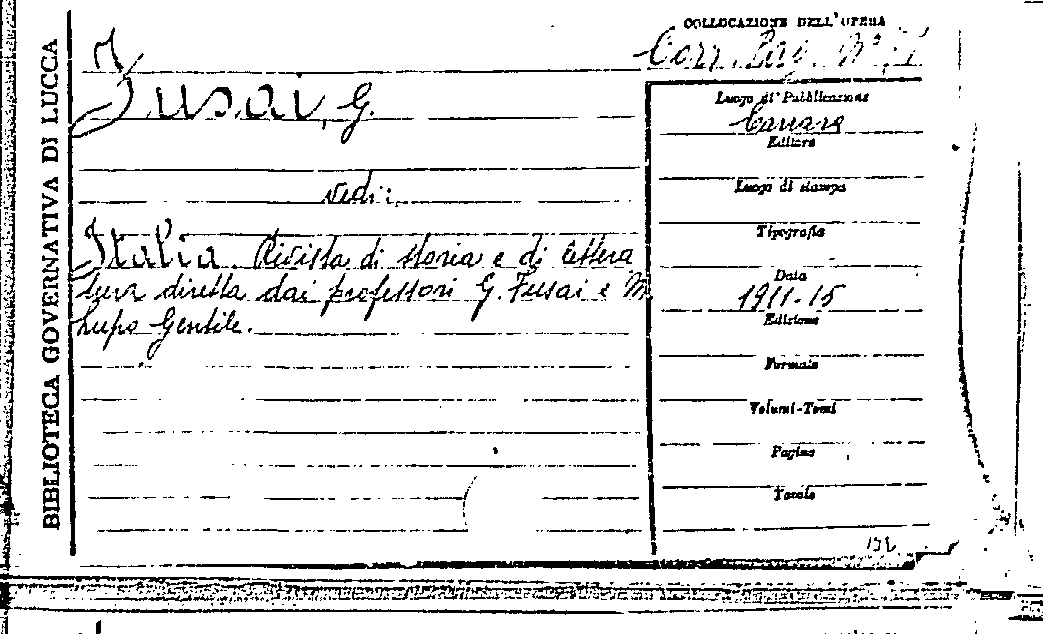 BIBLIOTECA GOVERNATIVA DI LUCCA
COLLOCAZIONE DELL'OPERA
Corr. Per.
Fusai, G.
vedi:
Italia. Rivista di storia e di lettera
tura diretta dai professori G. Fusai e M.
Lupo Gentile.
Luogo di Pubblicazione
Carrara
Editore
Luogo di stampa
Tipografia
Data
1911-15
Edizione
Formato
Volumi-Tomi
Pagine
Tavole